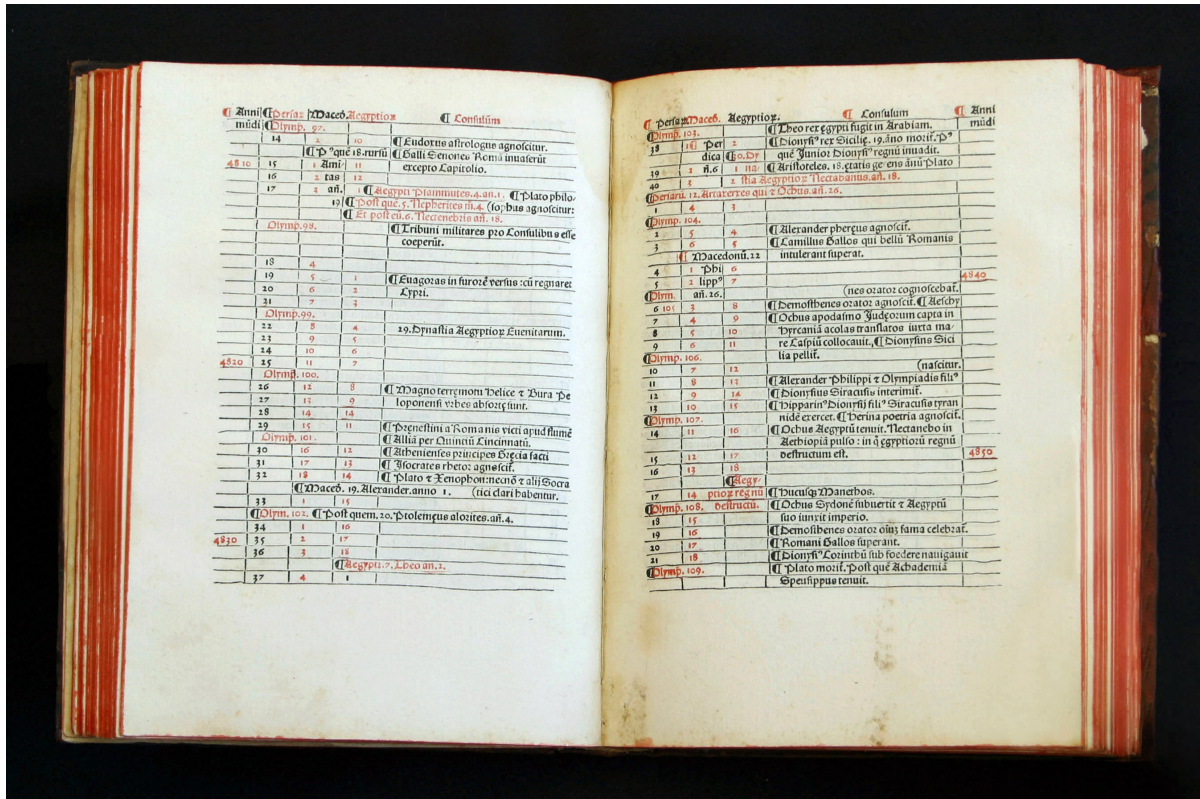 ¶ Anni ¶ Persaꝝ Macedõ. Aegyptioꝝ ¶ Consulum
mũdi ¶ Olymp. 97.
14 2 10 ¶ Eudoxus astrologus agnoscitur.
¶ Pꝰ quẽ 18. rursũ ¶ Galli Senones Romã inuaserũt
4810 15 1 Ami 11 excepto Capitolio.
16 2 tas 12
17 2 añ. 1 ¶ Aegypti Psammutes. 4. an. 1. ¶ Plato philo-
19 ¶ Post quẽ. 5. Nepherites m̃. 4. (sophus agnoscitur:
¶ Et post eũ. 6. Nectenebris añ. 18.
Olymp. 98. ¶ Tribuni militares pro Consulibus esse
coeperũt.
18 4
19 5 1 ¶ Euagoras in furorẽ versus: cũ regnaret
20 6 2 Cypri.
21 7 3
Olymp. 99.
22 8 4 29. Dynastia Aegyptioꝝ Euenitarum.
23 9 5
24 10 6
4820 25 11 7
Olymp. 100.
26 12 8 ¶ Magno terremotu Helice & Bura Pe
27 13 9 loponensi vrbes absorte sunt.
28 14 14
29 15 11 ¶ Prenestini a Romanis victi apud flumẽ
Olymp. 101. ¶ Alliã per Quinciũ Cincinnatũ.
30 16 12 ¶ Athenienses principes Grecia facti
31 17 13 ¶ Isocrates rhetor agnoscit̃.
32 18 14 ¶ Plato & Xenophon: necnõ & alij Socra
¶ Macedõ. 19. Alexander. anno 1. (tici clari habentur.
33 1 15
¶ Olym. 102. ¶ Post quem. 20. Ptolemęus alorites. añ. 4.
34 1 16
4830 35 2 17
36 3 18
¶ Aegypti. 7. Theo an. 2.
37 4 1
¶ Persaꝝ Macedõ. Aegyptioꝝ. ¶ Consulum ¶ Anni
¶ Olymp. 103. ¶ Theo rex ęgypti fugit in Arabiam. mũdi
38 1 Per 2 ¶ Dionysiꝰ rex Sicilię. 19. ãno morit̃. Pꝰ
dica ¶ 30. Dy quẽ Junior Dionysiꝰ regnũ inuadit.
39 2 ñ. 6 1 na- ¶ Aristoteles. 18. ętatis gẽs annũ Plato
40 3 2 stia Aegyptioꝝ Nectabanus. añ. 18.
¶ Persarũ. 12. Artaxerxes qui & Ochus. añ. 26.
1 4 3
¶ Olymp. 104.
2 5 4 ¶ Alexander pheręus agnoscit̃.
3 6 5 ¶ Camillus Gallos qui bellũ Romanis
¶ Macedonũ. 22 intulerant superat.
4 1 Phi 6
5 2 lippꝰ 7 4840
¶ Olym. añ. 26. (nes orator cognoscebat̃.
6 105 3 8 ¶ Demosthenes orator agnoscit̃. ¶ Aeschy
7 4 9 ¶ Ochus apodasmo Judęorum capta in
8 5 10 Hyrcaniã acolas translatos iuxta ma-
9 6 11 re Caspiũ collocauit. ¶ Dionysius Sici
¶ Olymp. 106. lia pellit̃.
10 7 12 (nascitur.
11 8 13 ¶ Alexander Philippi & Olympiadis filiꝰ
12 9 14 ¶ Dionysius Siracusis interimit̃.
13 10 15 ¶ Hipparinꝰ Dionysij filiꝰ Siracusis tyran
¶ Olymp. 107. nidẽ exercet. ¶ Herina poetria agnoscit̃.
14 11 16 ¶ Ochus Aegyptũ tenuit. Nectanebo in
Aethiopiã pulso: in q̃ ęgyptiorũ regnũ
15 12 17 destructum est. 4850
16 13 18
¶ Aegy-
17 14 ptioꝝ regnũ ¶ Hucusqȝ Manethos.
¶ Olymp. 108. destructũ. ¶ Ochus Sydonẽ subuertit & Aegyptũ
18 15 suo iunxit imperio.
19 16 ¶ Demosthenes orator oiũȝ fama celebrat̃.
20 17 ¶ Romani Gallos superant.
21 18 ¶ Dionysiꝰ Corinthũ sub foedere nauigauit
¶ Olymp. 109. ¶ Plato morit̃. Post quẽ Achademiã
Speusippus tenuit.